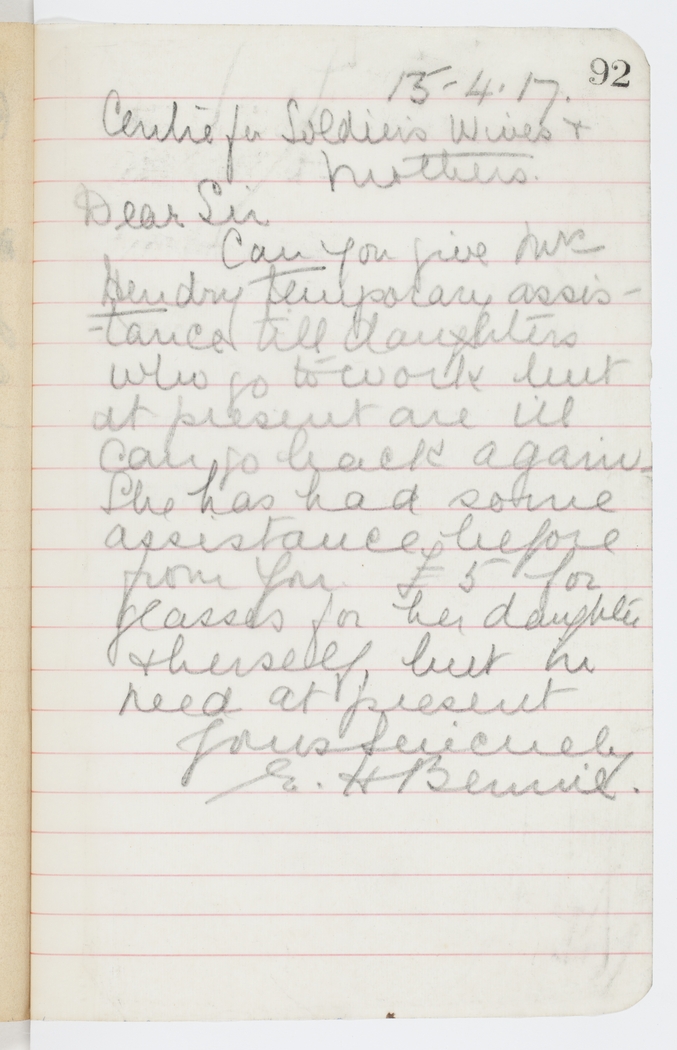 92
15-4-17.
Centre for Soldiers Wives +
Mothers.
Dear Sir
Can you give Mrs
Hendry temporary assis-
-tance till daughters
who go to work but
at present are ill
can go back again.
She has had some
assistance before
from you £5 for
glasses for her daughter
+ herself, but in
need at present
Yours sincerely
E. H Bennie.